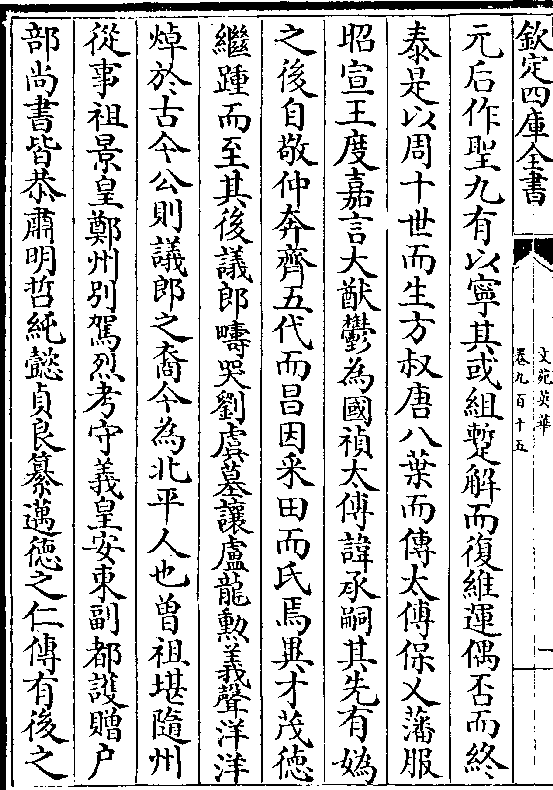 欽定四庫全書
文苑英華
卷九百十五
元后作聖九有以寧其或組蹔解而復維運偶否而終
泰是以周十世而生方叔唐八葉而傳太傅保乂藩服
昭宣王度嘉言大猷鬱為國禎太傅諱承嗣其先有媯
之後自敬仲奔齊五代而昌因采田而氏焉異才茂德
繼踵而至其後議郎疇哭劉虞墓讓盧龍勲義聲洋洋
焯於古今公則議郎之裔今為北平人也曽祖堪隨州
從事祖景皇鄭州别駕烈考守義皇安東副都護贈户
部尚書皆恭肅明哲純懿貞良纂邁德之仁傳有後之